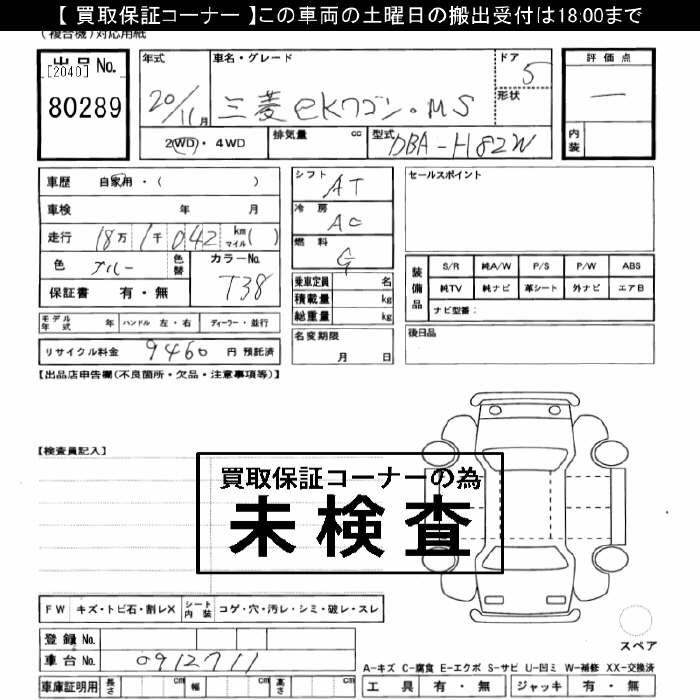 【 買取保証コーナー 】この車両の土曜日の搬出受付は18:00まで
(複合機)対応用紙
出品No.
[2040]
80289
年式
20/11月
車名・グレード
三菱 eKワゴン・MS
ドア
5
形状
2WD・4WD
排気量 cc
型式 DBA-H82W
評価点
―
内装
車歴 自家用・( )
車検 年 月
走行 18万1千042 km マイル( )
色 ブルー
色替
カラーNo.
T38
保証書 有・無
シフト AT
冷房 AC
燃料 G
乗車定員 名
積載量 kg
総重量 kg
名変期限
月 日
セールスポイント
装備品
S/R 純A/W P/S P/W ABS
純TV 純ナビ 革シート 外ナビ エアB
ナビ型番:
後日品
モデル年式 年 ハンドル 左・右 ディーラー・並行
リサイクル料金 9460 円 預託済
【出品店申告欄(不良箇所・欠品・注意事項等)】
【検査員記入】
買取保証コーナーの為
未検査
FW キズ・トビ石・割レX シート内装 コゲ・穴・汚レ・シミ・破レ・スレ
登録No.
車台No. 0912711
車庫証明用 長さ cm 幅 cm 高さ cm
スペア
A-キズ C-腐食 E-エクボ S-サビ U-凹ミ W-補修 XX-交換済
工具 有・無 ジャッキ 有・無